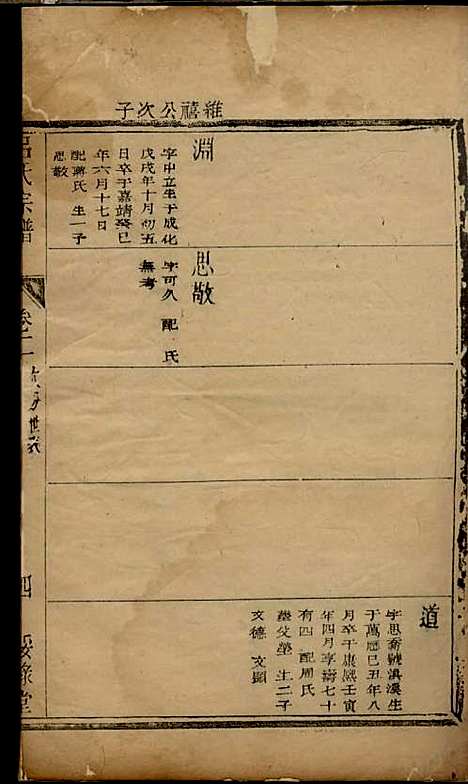 維禧公次子
淵
字中立生于成化
戊戌年十月初五
日卒于嘉靖癸巳
年六月十七日
配蔣氏 生一子
思敬
思敬
字可久 配 氏
無考
道
字思喬號滇溪生
于萬曆己丑年八
月卒于康熙壬寅
年四月享壽七十
有四 配周氏
葬父塋 生二子
文德 文顯
呂氏宗譜
卷二
四
綏祿堂